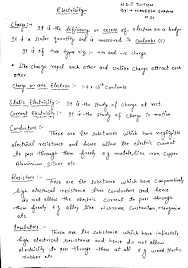 Electricity:-
Charge:- It is the deficiency or excess of electron on a body.
It is a scalar quantity and is measured in coulomb (C)
It is of two type viz :- +ve and -ve charge
Like charge repel each other and unlike charge attract each other.
Charge on one Electron :- 1.6 x 10 coulomb
Static Electricity:- It is the study of charge at rest
Current Electricity:- It is the study of charge in motion
Conductors :- These are the substance which have negligible
electrical resistance and hence allow the electric current
to pass through them freely e.g. metals, like iron, copper
Aluminium, silver etc.
Resistors:- These are the substance which have comparatively
high electrical resistance than conductors and hence
do not allow the electric current to pass through
them freely e.g. alloy like nichrome, constantan, manganin
etc.
Insulators:- These are the substance which have infinitely
high electrical resistance and hence do not allow
electricity to pass through them at all e.g. wood, plastic
rubber etc.